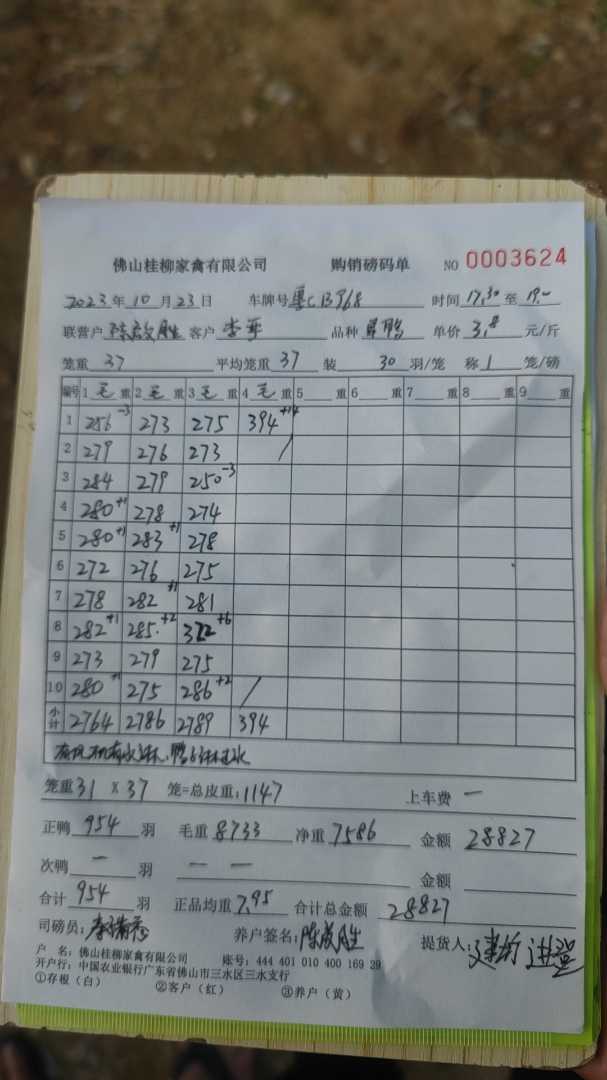 佛山桂柳家禽有限公司 购销磅码单 NO 0003624
2023年10月23日 车牌号粤C 时间17.30至19.00
联营户 客户李 品种 鸭 单价3.8元/斤
笼重37 平均笼重37 装30羽/笼 称1笼/磅
编号 1毛重 2毛重 3毛重 4毛重 5重 6重 7重 8重 9重
1 256-3 273 275 394+14
2 279 276 273 /
3 284 279 250-3
4 280+1 278 274
5 280+1 283+1 278
6 272 276 275
7 278 282+1 281
8 282+1 285+2 322+6
9 273 279 275
10 280+1 275 286+2 /
小计 2764 2786 2789 394
笼重31×37 笼=总皮重:1147 上车费 一
正鸭954羽 毛重8733 净重7586 金额28827
次鸭一羽 一 一 金额
合计954羽 正品均重7.95 合计总金额28827
司磅员: 养户签名: 提货人:
户 名:佛山桂柳家禽有限公司 账号:444 401 010 400 169 29
开户行:中国农业银行广东省佛山市三水区三水支行
①存根(白) ②客户(红) ③养户(黄)